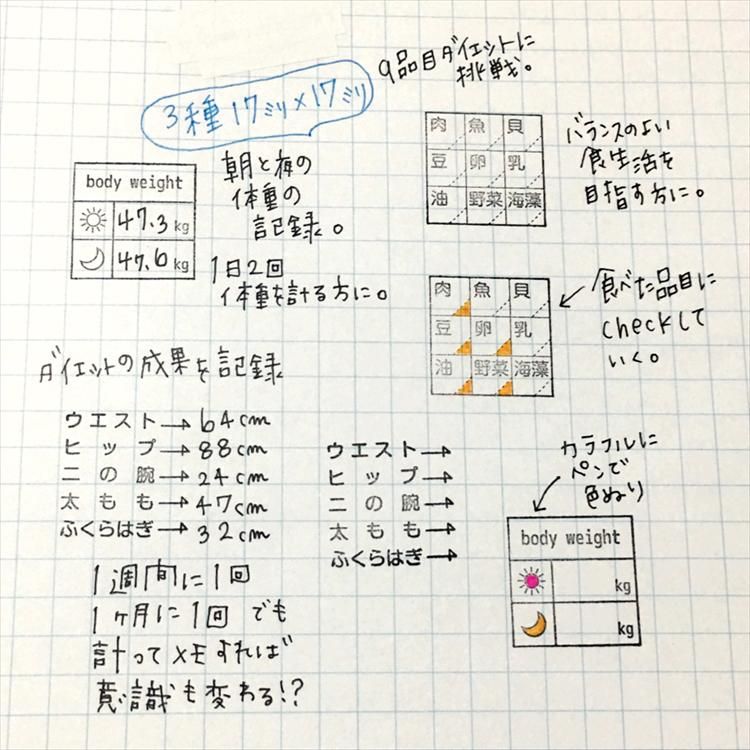 9品目ダイエットに
挑戦。
3種 17ミリ×17ミリ
肉 魚 貝
豆 卵 乳
油 野菜 海藻
バランスのよい
食生活を
目指す方に。
body weight
47.3 kg
47.6 kg
朝と夜の
体重の
記録。
1日2回
体重を計る方に。
肉 魚 貝
豆 卵 乳
油 野菜 海藻
食べた品目に
checkして
いく。
ダイエットの成果を記録
ウエスト→64cm
ヒップ→88cm
二の腕→24cm
太もも→47cm
ふくらはぎ→32cm
ウエスト→
ヒップ→
二の腕→
太もも→
ふくらはぎ→
カラフルに
ペンで
色ぬり
body weight
kg
kg
1週間に1回
1ヶ月に1回でも
計ってメモすれば
意識も変わる!?